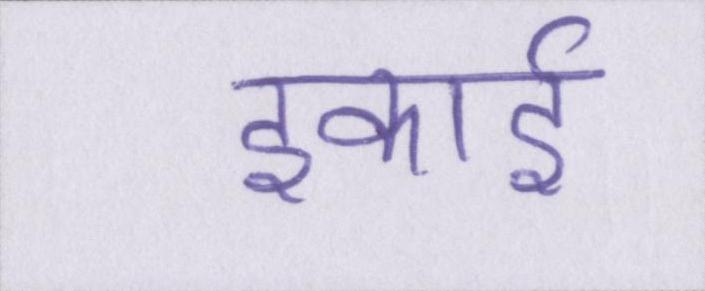 इकाई